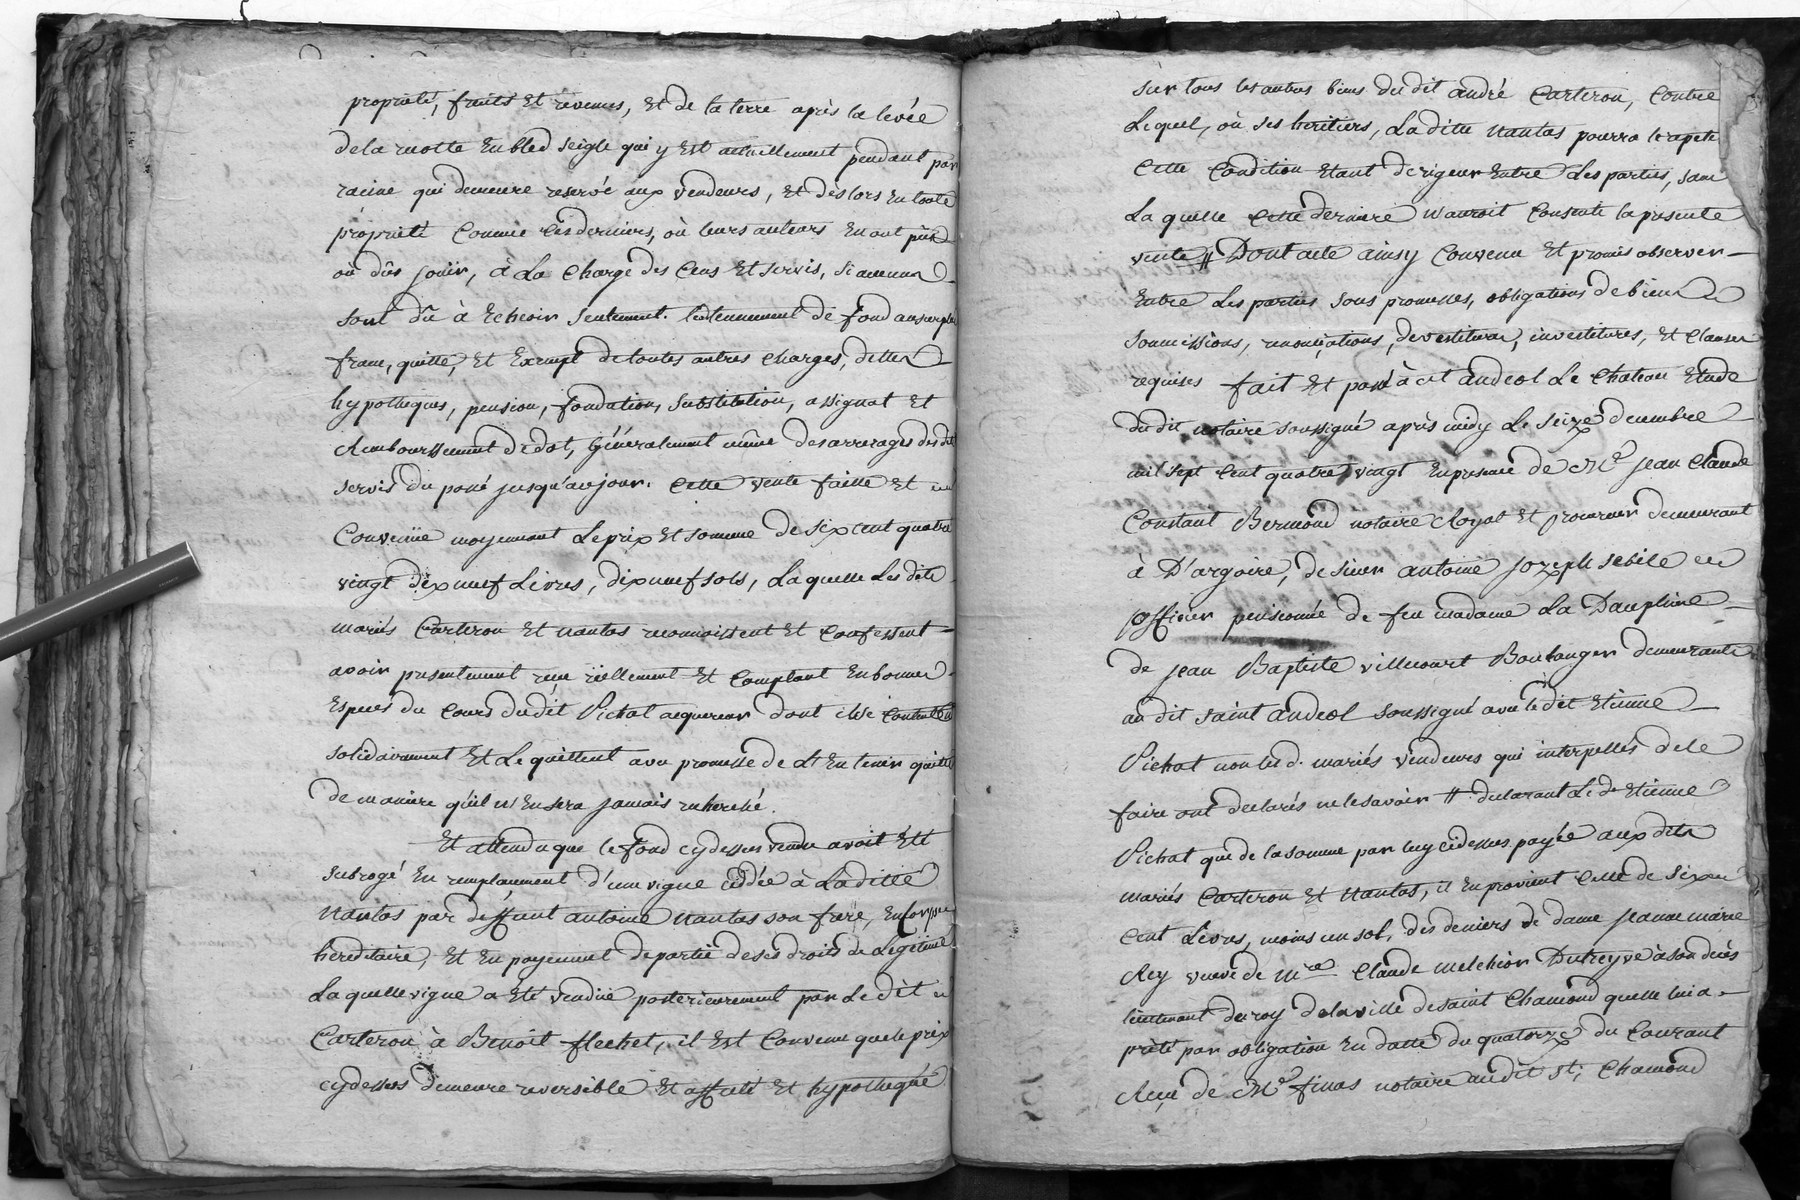 propriété, fruits Et revenus, Et de la terre après la levée
de la motte En bled Seigle qui y Est actuellement pendant par
racine qui demeure reservé aux vendeurs, Et des lors En toute
propriété Comme ces derniers, où leurs auteurs En ont pûe
où dûs jouir, à La Charge des Cens Et servis, si aucuns
sont dû à Echeoir Seulement. ledtennement de fond au surplus
franc, quitte, Et Exempt de toutes autres charges, dettes
hypotheques, pension, fondation, Substitution, assignat Et
Remboursement de dot, Généralement même des arrerages desdit
servis du passé jusqu'au jour. Cette vente faitte Et
Convenüe moyennant Le prix Et somme de Six Cent quatre
vingt dix neuf Livres, dix neuf sols, Laquelle Les dits
mariés Carteron Et nantas reconnoissent Et Confessent
avoir presentement reçue réellement Et Comptant En bonnes
Especes du Cours dudit Pichat acquereur dont ils se Contentent
solidairement Et Le quittent avec promesse de L'En tenir quitte
de maniere qu'il n'En sera jamais recherché.
Et attendu que le fond cy dessus vendu avoit Été
subrogé En remplacement d'une vigne cédée à La ditte
nantas par deffunt antoine nantas son frere, En
hereditaire, Et En payement de partie de ses droits de Légitime
La quelle vigne a Eté vendüe posterieurement par Le dit
Carteron à Benoit flechet, il Est Convenu que le prix
cy dessus demeure reversible Et affecté Et hypothequé
sur tous les autres biens du dit andré Carteron, Contre
Lequel, où ses heritiers, La ditte nantas pourra le repeter
Cette Condition Etant de rigeur Entre Les parties, sans
La quelle Cette derniere n'auroit Consenti la presente
vente // Dont acte ainsy Convenu Et promis observer
Entre Les parties sous promesses, obligations de biens
soumissions, renonciations, devestiture, investitures, Et Clauses
requises fait Et passé à st andeol Le Chateau Etude
du dit notaire soussigné après midy Le seize decembre
mil sept cent quatre vingt En presence de Me Jean Claude
Constant Bermond notaire Royal Et procureur demeurant
à D'argoire, de sieur antoine Jozeph sebile
officier pensionné de feu madame La Dauphine
de jean Baptiste villecourt Boulanger demeurants
au dit saint andeol soussigné avec le dit Etienne
Pichat non les d. mariés vendeurs qui interpellés de le
faire ont declarés ne le savoir // declarant Le dt Etienne
Pichat que de la somme par luy cidessus payée aux dits
mariés Carteron Et nantas, il En provient celle de six
Cent Livres, moins un sol, des deniers de dame jeanne marie
Rey veuve de Mre Claude melchior Dutreyve à son décès
lieutenant du roy de la ville de saint Chamond quelle lui a
prété par obligation En datte du quatorze du Courant
Reçu de Me finas notaire au dit st, Chamond